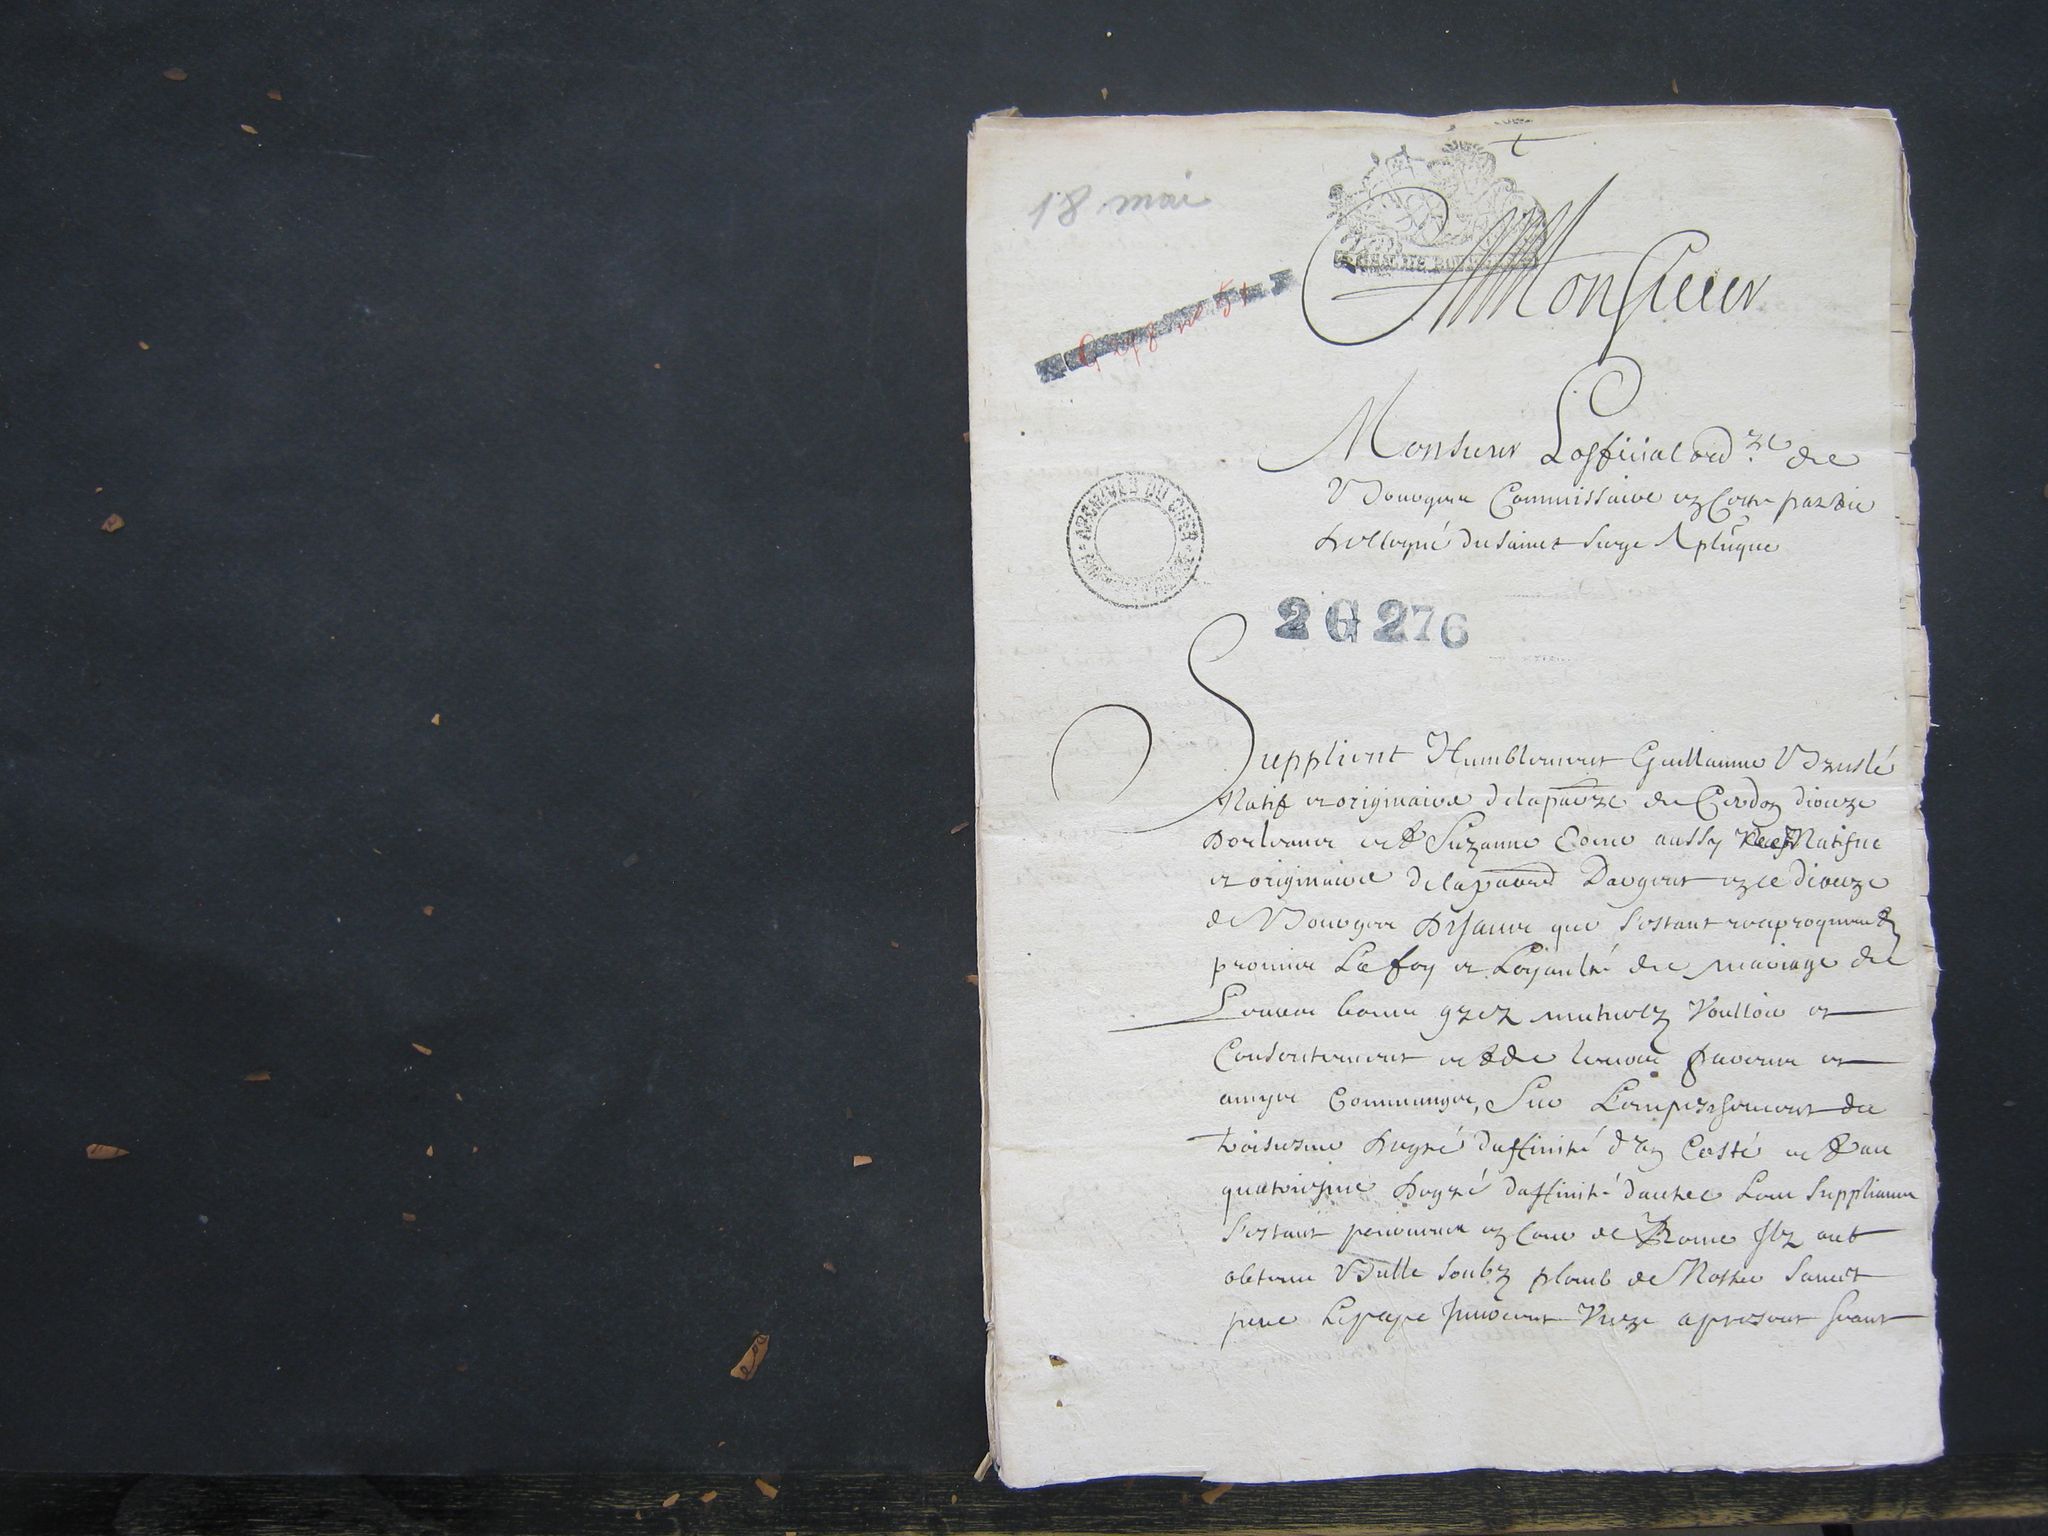 18 mai
Monsieur
Monsieur Lofficial ordre de
Bourges Commissaire en Cette partie
Dellegué du sainct siege Aplicque
ARCHIVES DU CHER
2 G 276
Supplient Humblement Guillaume Bruslé
Natif et originaire de la parre de Cerdon dioceze
Dorleans et Suzanne aussy Natifve
et originaire de la parre Dargent en ce dioceze
de Bourges Disant que s'estant reciproquemt
promis La foy et Loyaulté de mariage de
Leurs bons grez mutuelz Voulloir et
Consentement et de leurs parens et
amys Communs, Sur L'empeschement du
troisiesme Degré d'affinité d'un Costé et au
quatriesme Degré d'affinité d'autre Les Supplians
s'estant pourveus en Cour de Rome Ilz ont
obtenu Bulle soubz plomb de Nostre Sainct
pere Le pape Innocent Unze a present seant